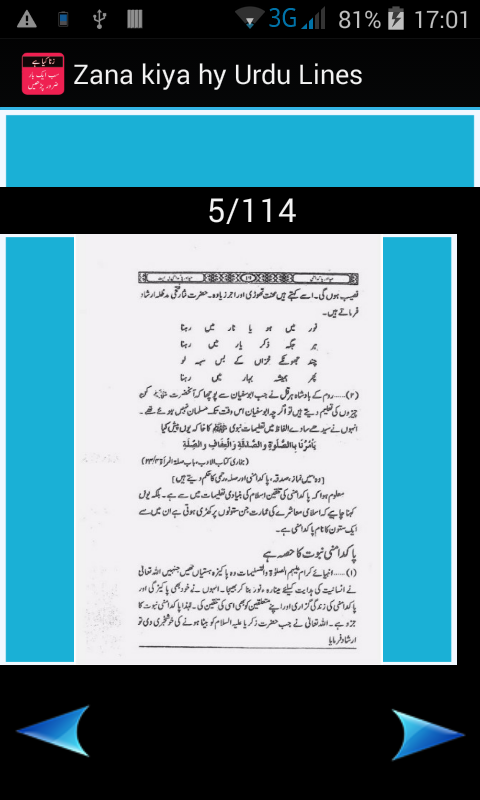 3G 81% 17:01
زنا کیا ہے
سب ایک بار
ضرور پڑھیں
Zana kiya hy Urdu Lines
5/114
نصیب ہوں گی۔ اسے کہتے ہیں محنت تھوڑی اور اجر زیادہ۔ حضرت مفتی مدظلہ ارشاد
فرماتے ہیں۔
نور میں ہو یا نار میں رہنا
ہر جگہ ذکر یار میں رہنا
چند جھونکے خزاں کے بس سہہ لو
پھر ہمیشہ بہار میں رہنا
(۲)......روم کے بادشاہ ہرقل نے جب ابوسفیان سے پوچھا کہ آنحضرت ﷺ کن
چیزوں کی تعلیم دیتے ہیں تو اگرچہ ابوسفیان اس وقت تک مسلمان نہیں ہوئے تھے۔
انہوں نے سیدھے سادے الفاظ میں تعلیمات نبوی ﷺ کا خاکہ یوں پیش کیا
يَأمُرُنَا بِالصَّلٰوةِ وَالصَّدَقَةِ وَالْعِفَافِ وَالصِّلَةِ
(بخاری کتاب الادب، باب صلۃ المرأۃ ۲۳/۳)
[وہ ہمیں نماز، صدقہ، پاکدامنی اور صلہ رحمی کا حکم دیتے ہیں]
معلوم ہوا کہ پاکدامنی کی تلقین اسلام کی بنیادی تعلیمات میں سے ہے۔ بلکہ یوں
کہنا چاہیے کہ اسلامی معاشرے کی عمارت جن ستونوں پر کھڑی ہوتی ہے ان میں سے
ایک ستون کا نام پاکدامنی ہے۔
پاکدامنی نبوت کا حصہ ہے
(۱)......انبیائے کرام علیہم الصلوٰۃ والتسلیمات وہ پاکیزہ ہستیاں تھیں جنہیں اللہ تعالیٰ
نے انسانیت کی ہدایت کیلئے مینارہ نور بنا کر بھیجا۔ انہوں نے خود بھی پاکیزگی اور
پاکدامنی کی زندگی گزاری اور اپنے متعلقین کو بھی اسی کی تلقین کی۔ لہٰذا پاکدامنی نبوت کا
جزو ہے۔ اللہ تعالیٰ نے جب حضرت زکریا علیہ السلام کو بیٹا ہونے کی خوشخبری دی تو
ارشاد فرمایا